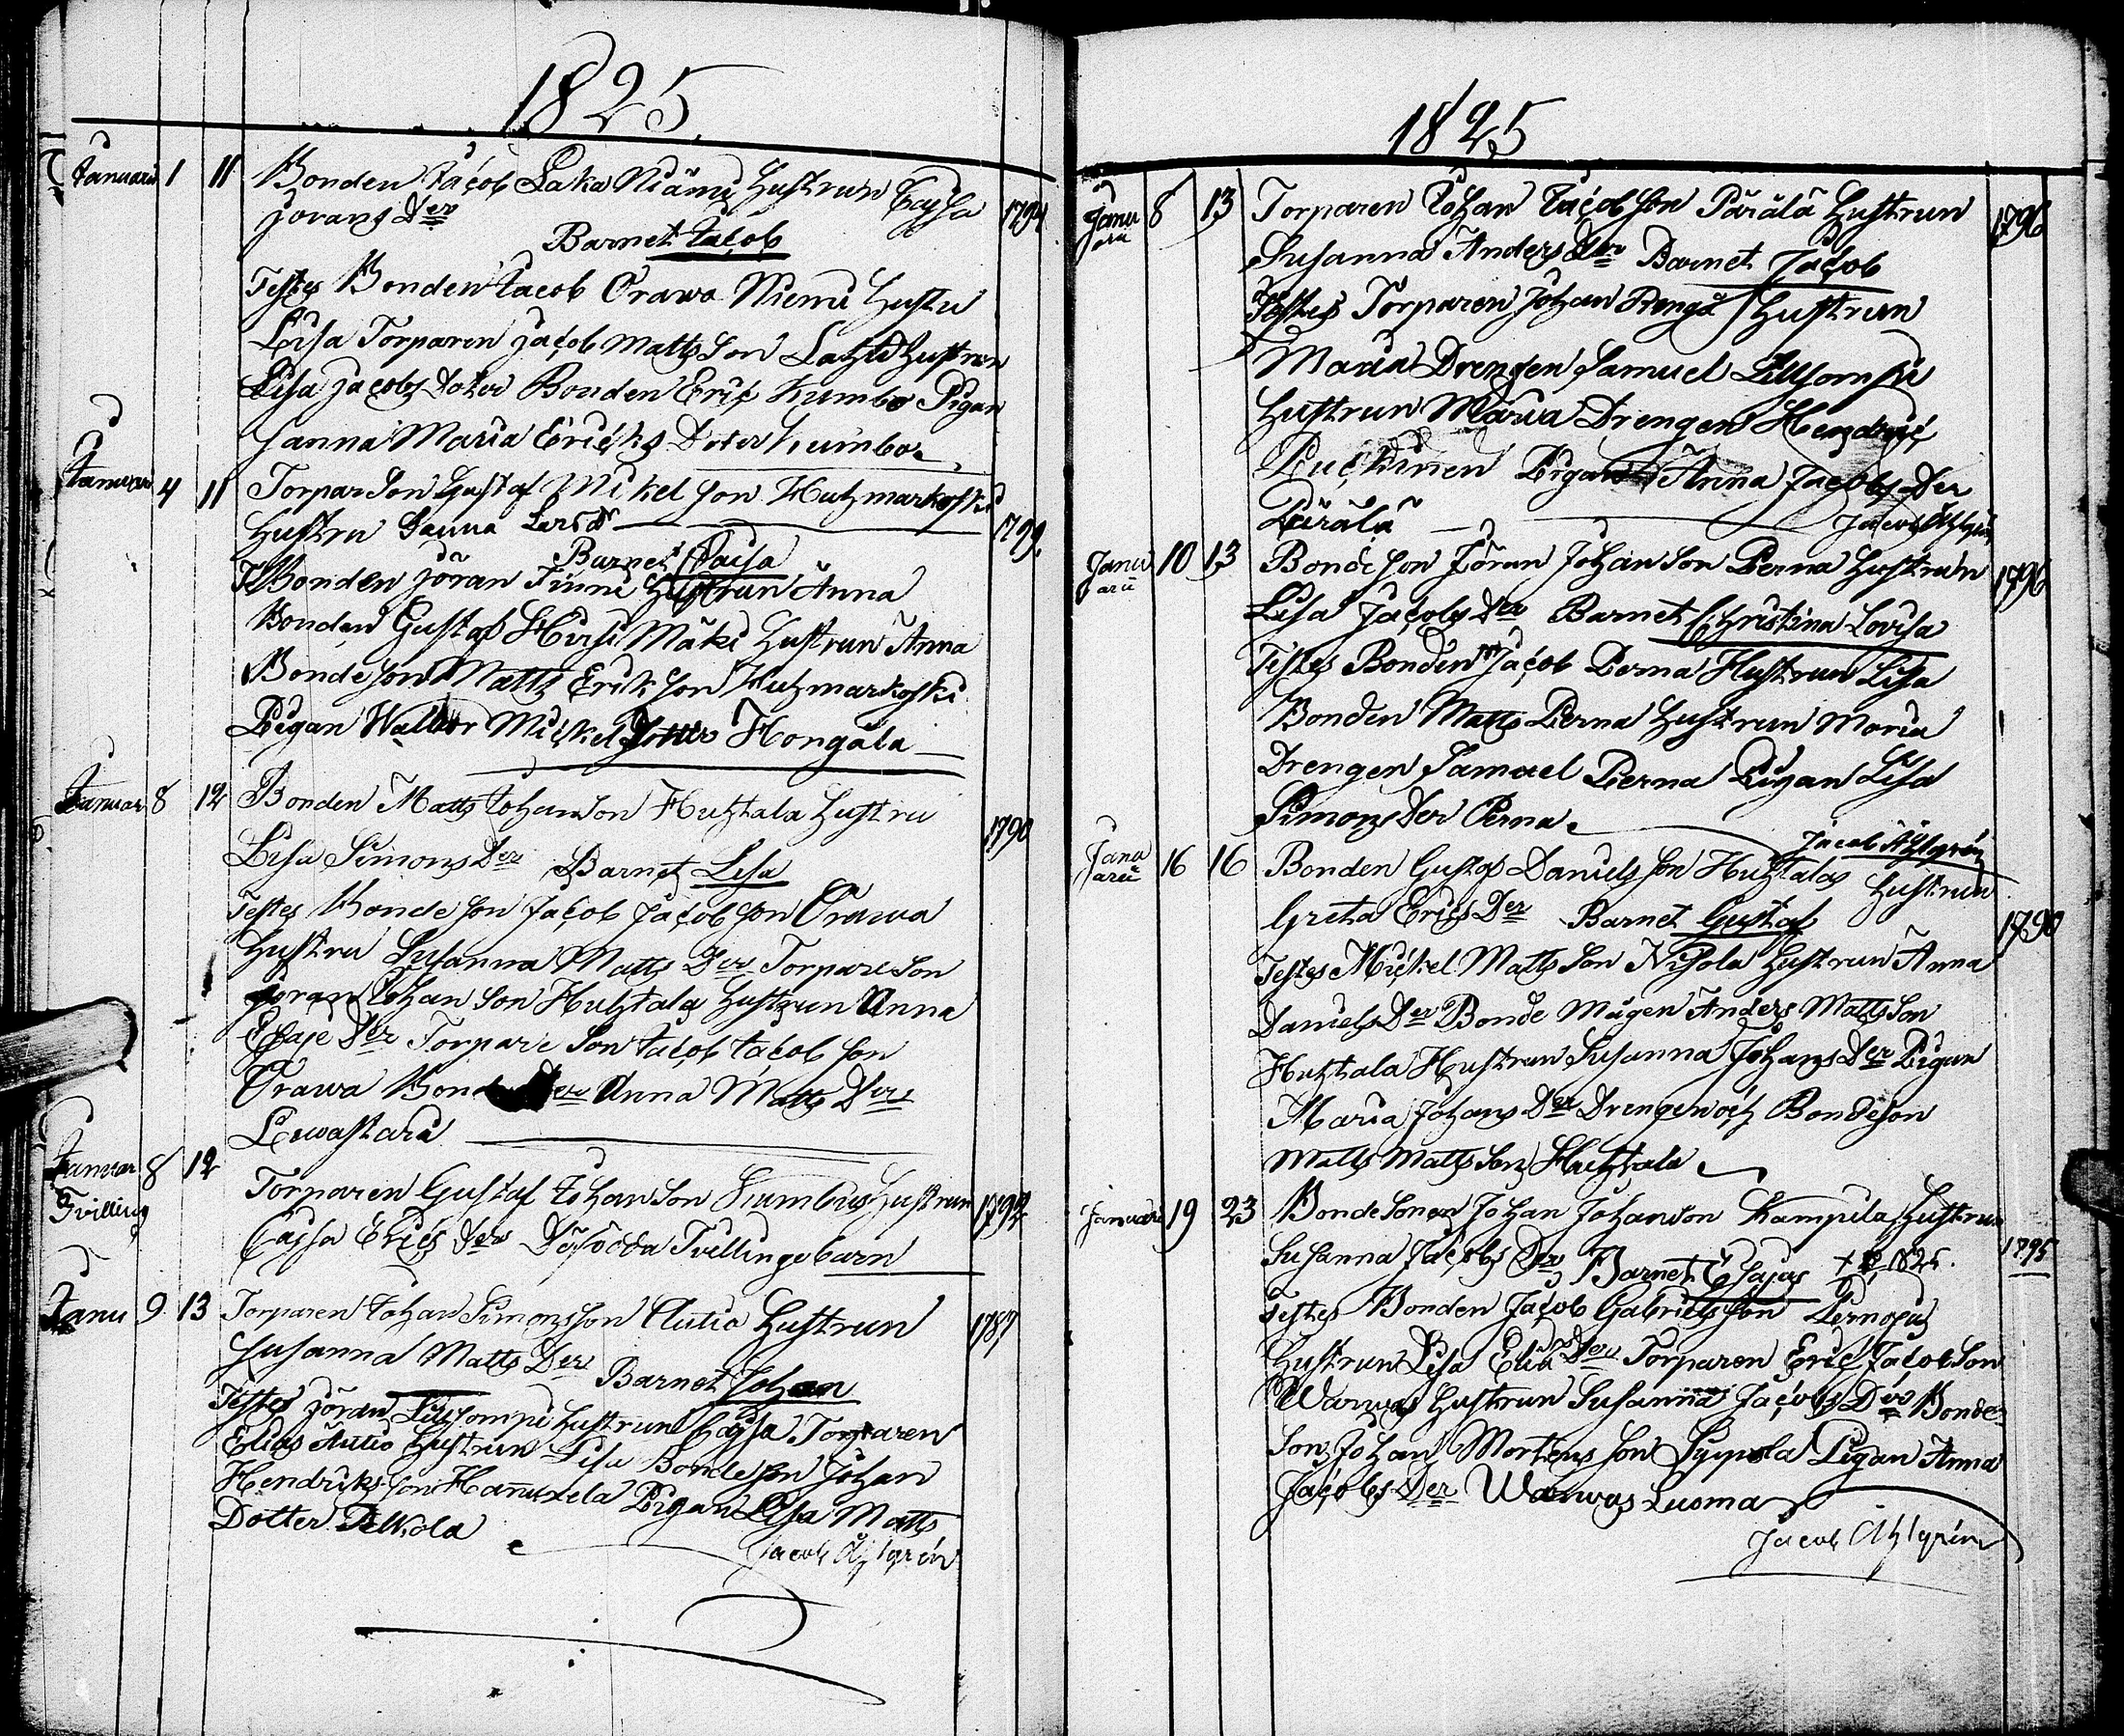 1825
Januarii 1 11 Bonden Jacob Laka Niämi Hustrun Cajsa
Jorans Der 1794
Barnet Jacob
Testes Bonden Jacob Orawa Niemi Hustru
Lisa Torparen Jacob Matts Son Hustrun
Lisa Jacobs Doter Bonden Eric Kumbo Pigan
Sanna Maria Ericks Doter Kumbo
Januari 4 11 Torpar Son Gustaf Mikel Son Huhmarkoski
Hustru Sanna Lars Dr 1799
Barnet Caisa
T Bonden Jöran Finni Hustrun Anna
Bonden Gustaf Hirsi Mäki Hustrun Anna
Bonde Son Matts Erik Son Huhmarkoski
Pigan Wallbor Mickel Dotter Hongala
Januar 8 12 Bonden Matts Johan Son Huhtala Hustru
1790
Lisa Simons Der Barnet Lisa
Testes Bonde Son Jacob Jacob Son Orawa
Hustru Susanna Matts Der Torpare Son
Joran Johan Son Huhtala Hustrun Anna
Esaje Der Torpare Son Jacob Jacob Son
Orawa Bonde Der Anna Matts Der
Lewastari
Januar 8 12
Tvilling Torparen Gustaf Johan Son Kumbus Hustrun 1792
Cajsa Erics Der Döfödda Tvillinge barn
Janu 9 13 Torparen Johan Simons Son Autio Hustrun 1787
Susanna Matts Der
Barnet Johan
Testes Jöran Lillsompi Hustrun Cajsa Torparen
Elias Autio Hustrun Lisa Bonde Son Johan
Hendriks Son Hannuxela Pigan Lisa Matts
Dotter Pelkola
Jacob Ahlgrén
1825
Janu
arii 8 13 Torparen Johan Jacob Son Pärälä Hustrun 1796
Susanna Anders Der Barnet Jacob
Testes Torparen Johan Renga Hustrun
Maria Drengen Samuel Lillsompi
Hustrun Maria Drengen Hendric
Luckinen Pigan Anna Jacobs Der
Pärälä
Jacob Ahlgrén
Janu
arii 10 13 Bonde Son Jöran Johan Son Perna Hustrun 1796
Lisa Jacobs Der Barnet Christina Lovisa
Testes Bonden Jacob Perna Hustrun Lisa
Bonden Matts Perna Hustrun Maria
Drengen Samuel Perna Pigan Lisa
Simons Der Perna
Jacob Ahlgrén
Janu
arii 16 16 Bonden Gustaf Daniels Son Huhtalas Hustrun
Greta Erics Der Barnet Gustaf 1790
Testes Mickel Matts Son Nisola Hustrun Anna
Daniels Der Bonde Mågen Anders Matts Son
Huhtala Hustrun Susanna Johans Der Pigan
Maria Johans Der Drengen och Bondeson
Matts Matts Son Huhtala
Januarii 19 23 Bonde Sonen Johan Johanson Kampila Hustrun
Susanna Jacobs Der Barnet Esajas 1795
Testes Bonden Jacob Gabriels Son Pernopus
Hustrun Lisa Elias Der Torparen Eric Jacob Son
Warwas Hustrun Susanna Jacobs Der Bonde
Son Johan Mortens Son Sippola Pigan Anna
Jacobs Der Warwas Luoma
Jacob Ahlgrén